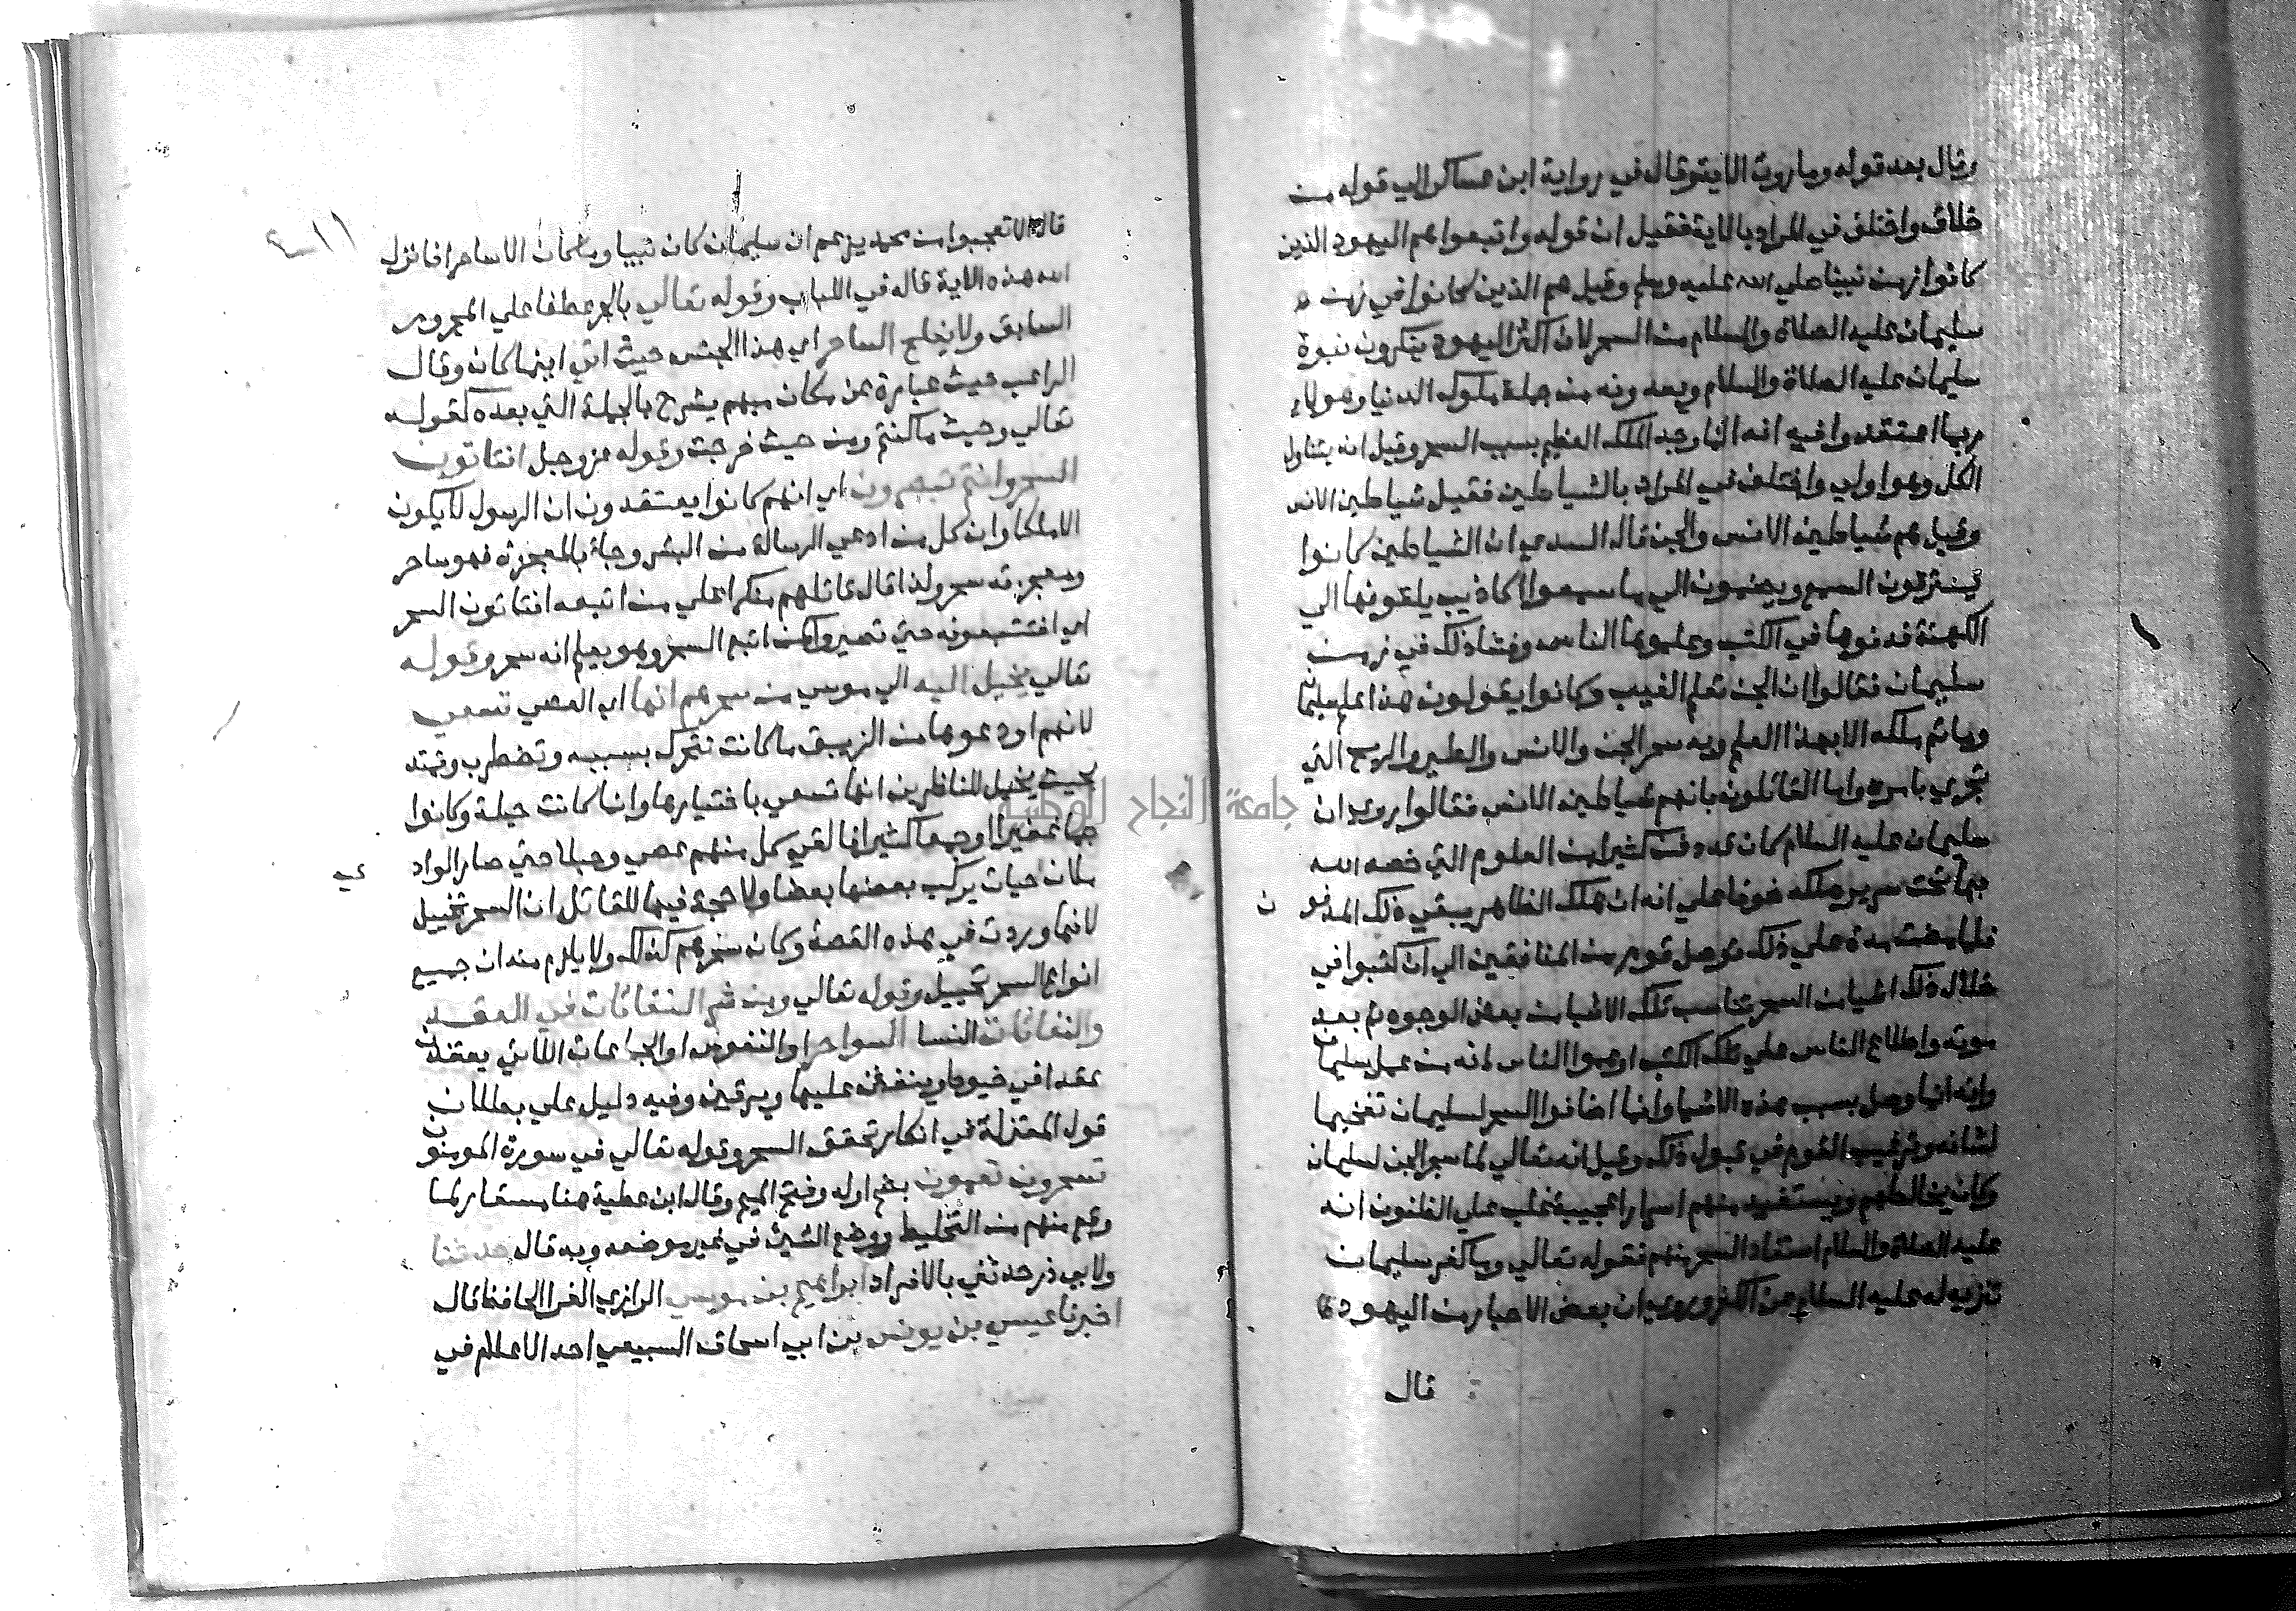 وقال بعد قوله وماروت الاية وقال في رواية ابن عساكر الي قوله من
خلاق واختلف في المراد بالاية فقيل ان قوله واتبعوا هم اليهود الذين
كانوا زمن نبينا صلي الله عليه وسلم وقيل هم الذين كانوا في زمن
سليمان عليه الصلاة والسلام من السحر لان اكثر اليهود ينكرون نبوة
سليمان عليه الصلاة والسلام ويعدونه من جملة ملوك الدنيا وهولاء
ربما اعتقدوا فيه انه انما وجد الملك العظيم بسبب السحر وقيل انه يتناول
الكل وهو اولي واختلف في المراد بالشياطين فقيل شياطين الانس
وقيل هم شياطين الانس والجن قال السدي ان الشياطين كانوا
يسترقون السمع ويضمون الي ما سمعوا اكاذيب يلقونها الي
الكهنة فدنوها في الكتب وعلموها الناس وفشا ذلك في زمن
سليمان فقالوا ان الجن تعلم الغيب وكانوا يقولون هذا علم سليمان
وماتم ملكه الا بهذا العلم وبه سحر الجن والانس والطير والريح التي
تجري بامره واما القائلون بانهم شياطين الانس فقالوا روي ان
سليمان عليه السلام كان قد دفن كثيرا من العلوم التي خصه الله
بها تحت سرير ملكه خوفا علي انه ان هلك الظاهر يبقي ذلك المدفون
فلما مضت مدة علي ذلك توصل قوم من المنافقين الي ان كتبوا في
خلال ذلك اشيا من السحر تناسب تلك الاشيا من بعض الوجوه ثم بعد
موته واطلاع الناس علي تلك الكتب اوهموا الناس انه من عمل سليمان
وانه انما وصل بسبب هذه الاشيا وانما اضافوا السحر لسليمان تفخيما
لشانه وترغيب القوم في قبول ذلك وقيل انه تعالي لما سخر الجن لسليمان
وكان يخالطهم ويستفيد منهم اسرارا عجيبة غلب علي الظنون انه
عليه الصلاة والسلام استفاد السحر منهم فقوله تعالي وما كفر سليمان
تنزيه له عليه السلام عن الكفر وروي ان بعض الاحبار من اليهود
قال
قال الا تعجبوا من محمد يزعم ان سليمان كان نبيا وما كان الا ساحرا فانزل
الله هذه الاية قاله في اللباب وقوله تعالي بالجر عطفا علي المجرور
السابق ولا يفلح الساحر اي هذا الجنس حيث اتي اينما كان وقال
الراغب حيث عبارة عن مكان مبهم يشرح بالجملة التي بعده كقوله
تعالي وحيث ما كنتم ومن حيث خرجت وقوله عز وجل افتاتون
السحر وانتم تبصرون اي انهم كانوا يعتقدون ان الرسول لا يكون
الا ملكا وان كل من ادعي الرسالة من البشر وجاء بالمعجزة فهو ساحر
ومعجزته سحر ولذا قال قائلهم منكرا علي من اتبعه افتاتون السحر
اي افتتبعونه حتي تصيروا كمن اتبع السحر وهو يعلم انه سحر وقوله
تعالي يخيل اليه الي موسي من سحرهم انها اي العصي تسعي
لانهم اودعوها من الزيبق ما كانت تتحرك بسببه وتضطرب وتمتد
بحيث يخيل للناظرين انها تسعي باختيارها وانما كانت حيلة وكانوا
جما غفيرا وجمعا كثيرا فالقي كل منهم عصي وحبلا حتي صار الواد
ي
ملان حيات يركب بعضها بعضا ولا حجة فيها للقائل ان السحر تخييل
لانها وردت في هذه القصة وكان سحرهم كذلك ولا يلزم منه ان جميع
انواع السحر تخييل وقوله تعالي ومن شر النفاثات في العقد
والنفاثات النسا السواحر او النفوس او الجماعات اللاتي يعقدن
عقدا في خيوط وينفثن عليها ويرقين وفيه دليل علي بطلان
قول المعتزلة في انكار تحقق السحر وقوله تعالي في سورة المومنون
تسحرون تعمون بضم اوله وفتح الميم وقال ابن عطية هنا مستعار لما
وقع منهم من التخليط ووضع الشيء في غير موضعه وبه قال حدثنا
ولابي ذر حدثني بالافراد ابراهيم بن موسي الرازي الفرا الحافظ قال
اخبرنا عيسي بن يونس بن ابي اسحاق السبيعي احد الاعلام في
جامعة النجاح الوطنية